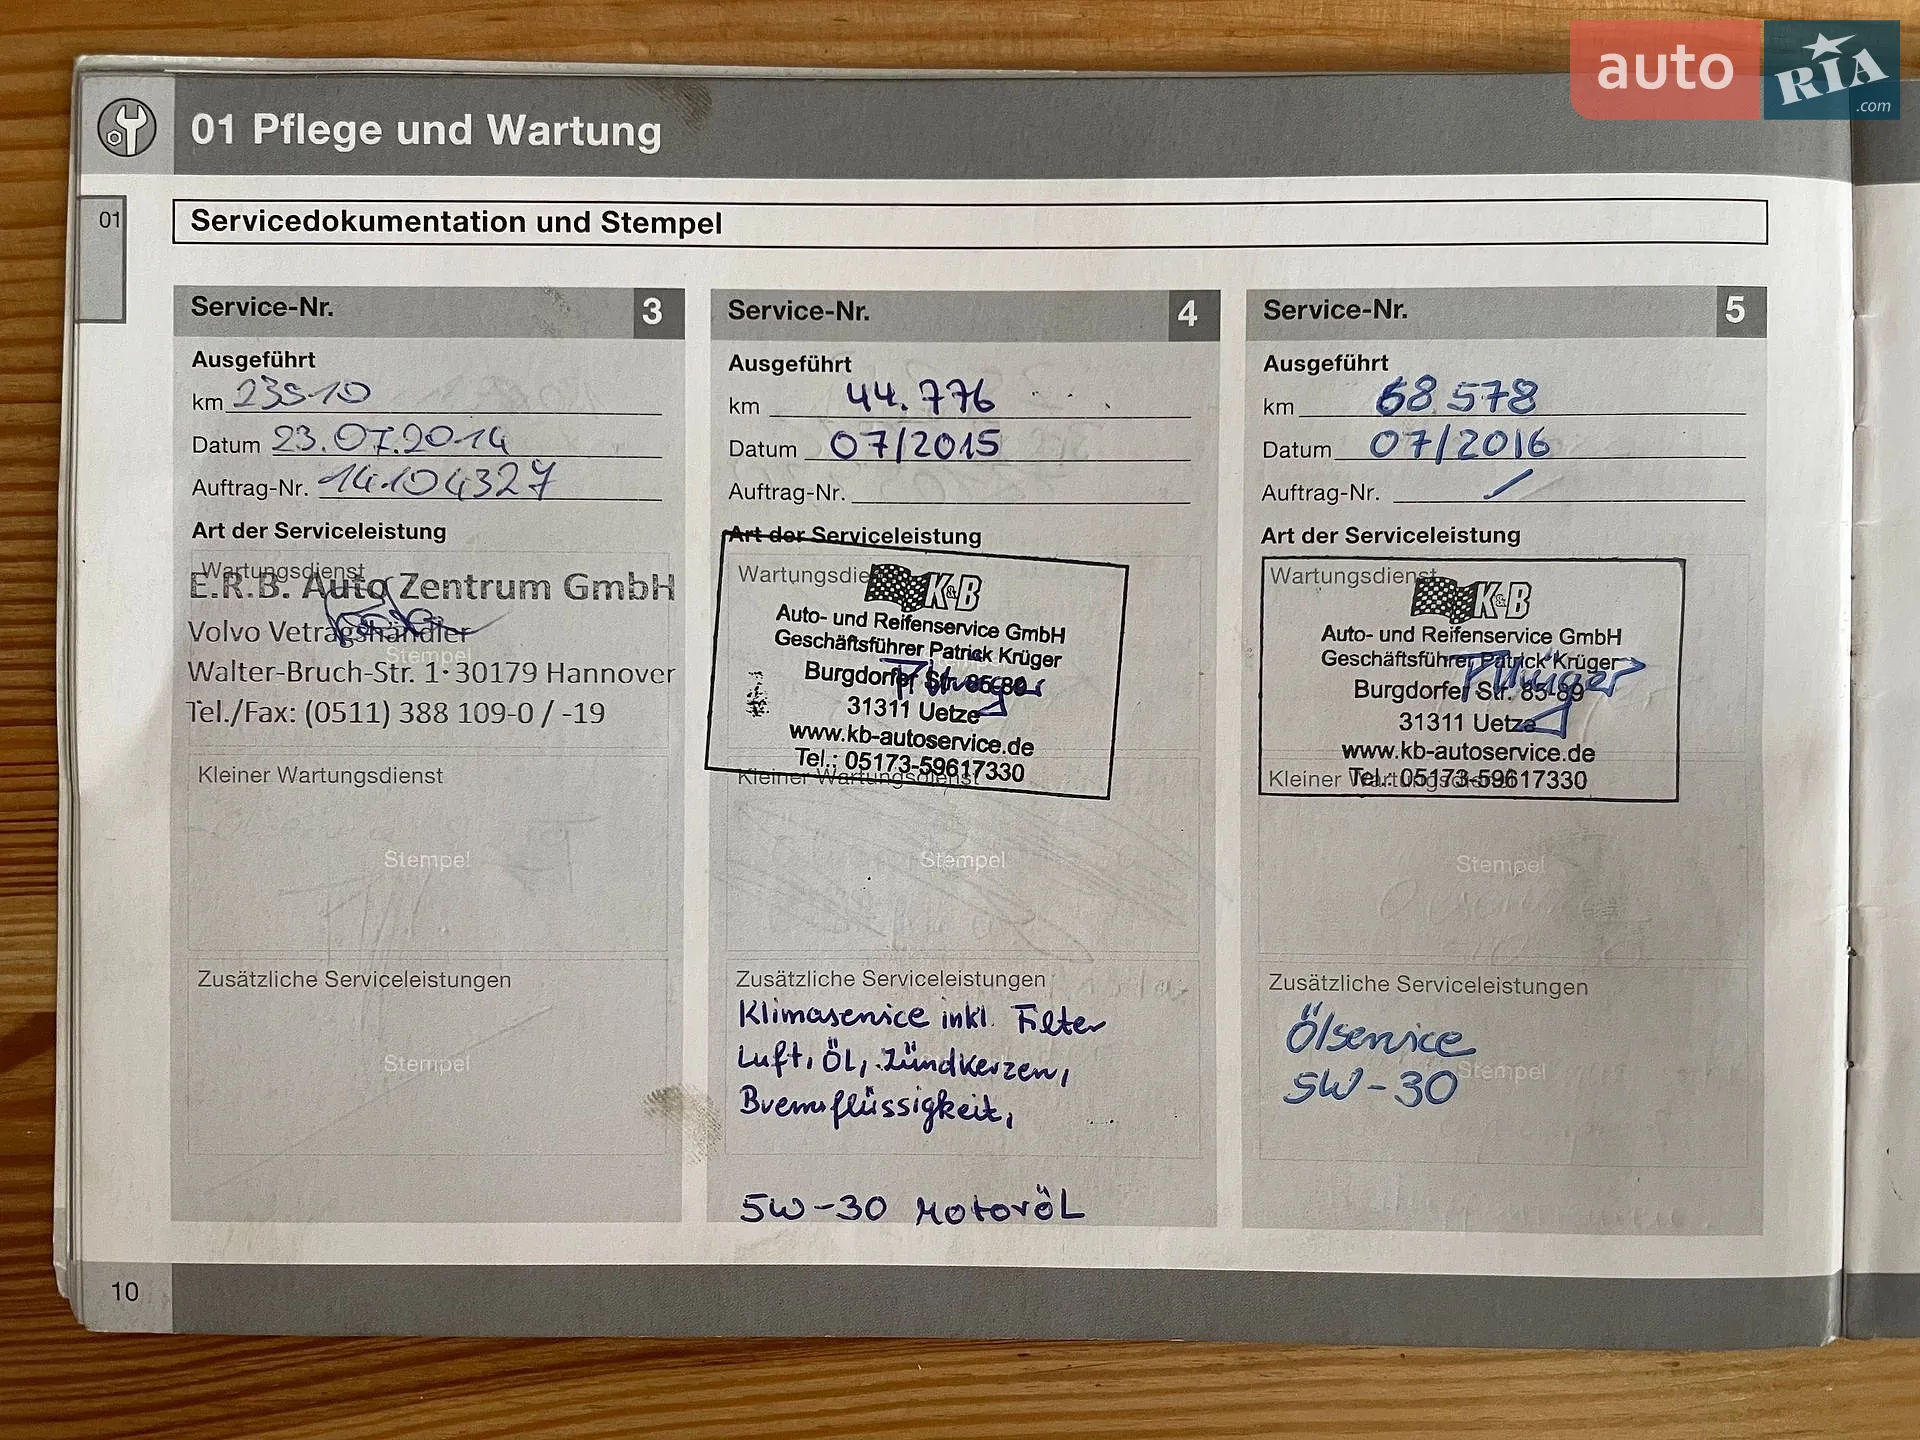 auto RIA.com
01 Pflege und Wartung
01
Servicedokumentation und Stempel
Service-Nr. 3
Ausgeführt
km 23510
Datum 23.07.2014
Auftrag-Nr. 14104327
Art der Serviceleistung
Wartungsdienst
E.R.B. Auto Zentrum GmbH
Volvo Vetragshändler
Stempel
Walter-Bruch-Str. 1·30179 Hannover
Tel./Fax: (0511) 388 109-0 / -19
Kleiner Wartungsdienst
Stempel
Zusätzliche Serviceleistungen
Stempel
Service-Nr. 4
Ausgeführt
km 44.776
Datum 07/2015
Auftrag-Nr.
Art der Serviceleistung
Wartungsdie
K&B
Auto- und Reifenservice GmbH
Geschäftsführer Patrick Krüger
Burgdorfer Str. 85-89
31311 Uetze
www.kb-autoservice.de
Tel.: 05173-59617330
Kleiner Wartungsdienst
Stempel
Zusätzliche Serviceleistungen
Klimaservice inkl. Filter
Luft, Öl, Zündkerzen,
Bremsflüssigkeit,
5W-30 Motoröl
Service-Nr. 5
Ausgeführt
km 68.578
Datum 07/2016
Auftrag-Nr. /
Art der Serviceleistung
Wartungsdienst
K&B
Auto- und Reifenservice GmbH
Geschäftsführer Patrick Krüger
Burgdorfer Str. 85-89
31311 Uetze
www.kb-autoservice.de
Tel.: 05173-59617330
Kleiner Wartungsdienst
Stempel
Zusätzliche Serviceleistungen
Ölservice
5W-30
Stempel
10